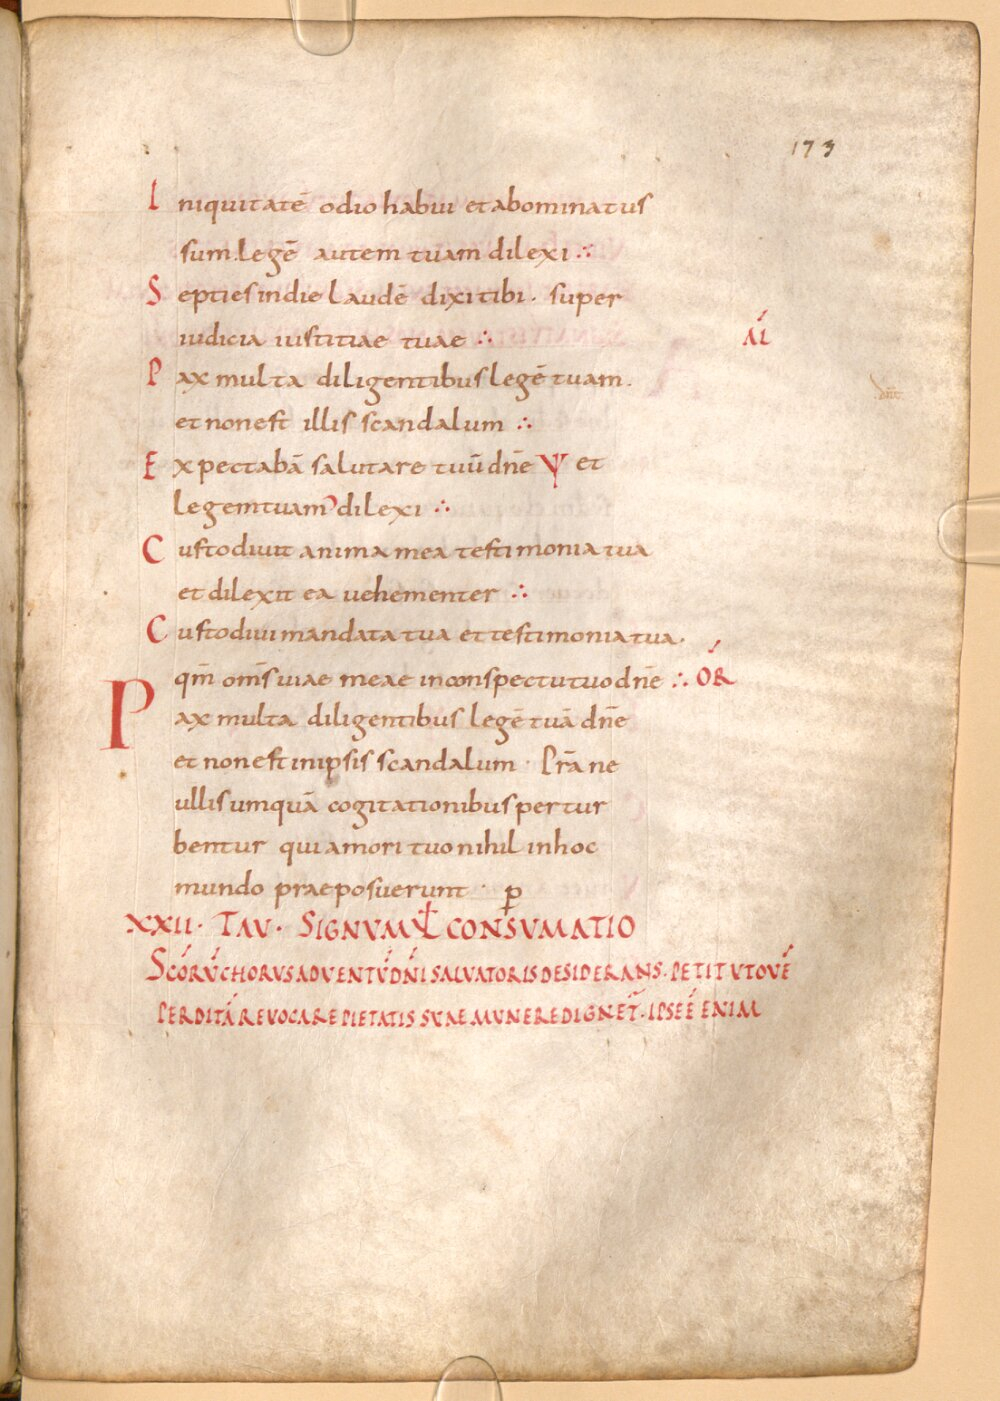 173
Iniquitatē odio habui et abominatus
sum. legē autem tuam dilexi ∴
Septies in die laudē dixi tibi. super
iudicia iustitiae tuae ∴
AL
Pax multa diligentibus legē tuam.
et non est illis scandalum ∴
Expectabā salutare tuū dn̄e Ѱ et
legem tuam dilexi ∴
Custodiuit anima mea testimonia tua
et dilexit ea uehementer ∴
Custodiui mandata tua et testimonia tua.
qm̄ om̄s uiae meae in conspectu tuo dn̄e ∴ OR
Pax multa diligentibus legē tuā dn̄e
et non est in ipsis scandalum · P̄rā ne
ullis umquā cogitationibus pertur
bentur qui amori tuo nihil in hoc
mundo praeposuerunt · ꝑ
XXII · TAU · SIGNUM Ł CONSUMATIO
SCŌRŪ CHORUS ADUENTŪ DN̄I SALUATORIS DESIDERANS. PETIT UT OUĒ
PERDITĀ REUOCARE PIETATIS SUAE MUNERE DIGNET̄. IPSE Ē ENIM